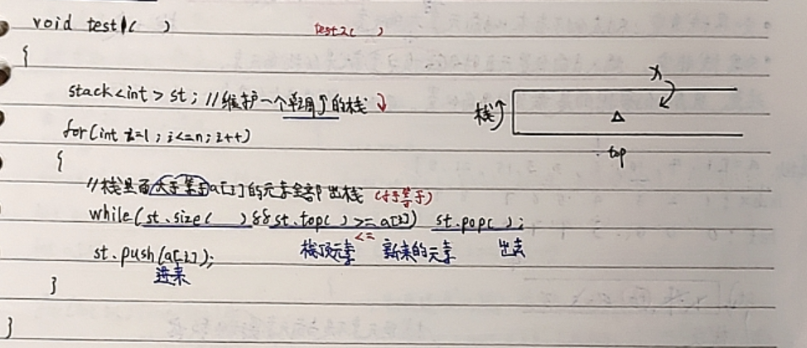 void test1( )    test2( )
{
stack<int> st; //维护一个单调↑的栈 ↓
for(int i=1; i<=n; i++)
{
//栈里面大于等于a[i]的元素全部出栈 (小于等于)
while(st.size( ) && st.top( ) >= a[i]) st.pop( );
<=
栈顶元素 新来的元素 出去
st.push(a[i]);
进来
}
}
x
栈↑ △
top